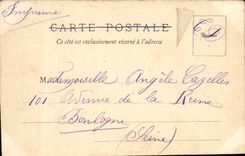 Imprimé
CARTE POSTALE
Ce côté est exclusivement réservé à l'adresse
Mademoiselle Angèle Cazelles
101 Avenue de la Reine
Boulogne
(Seine)